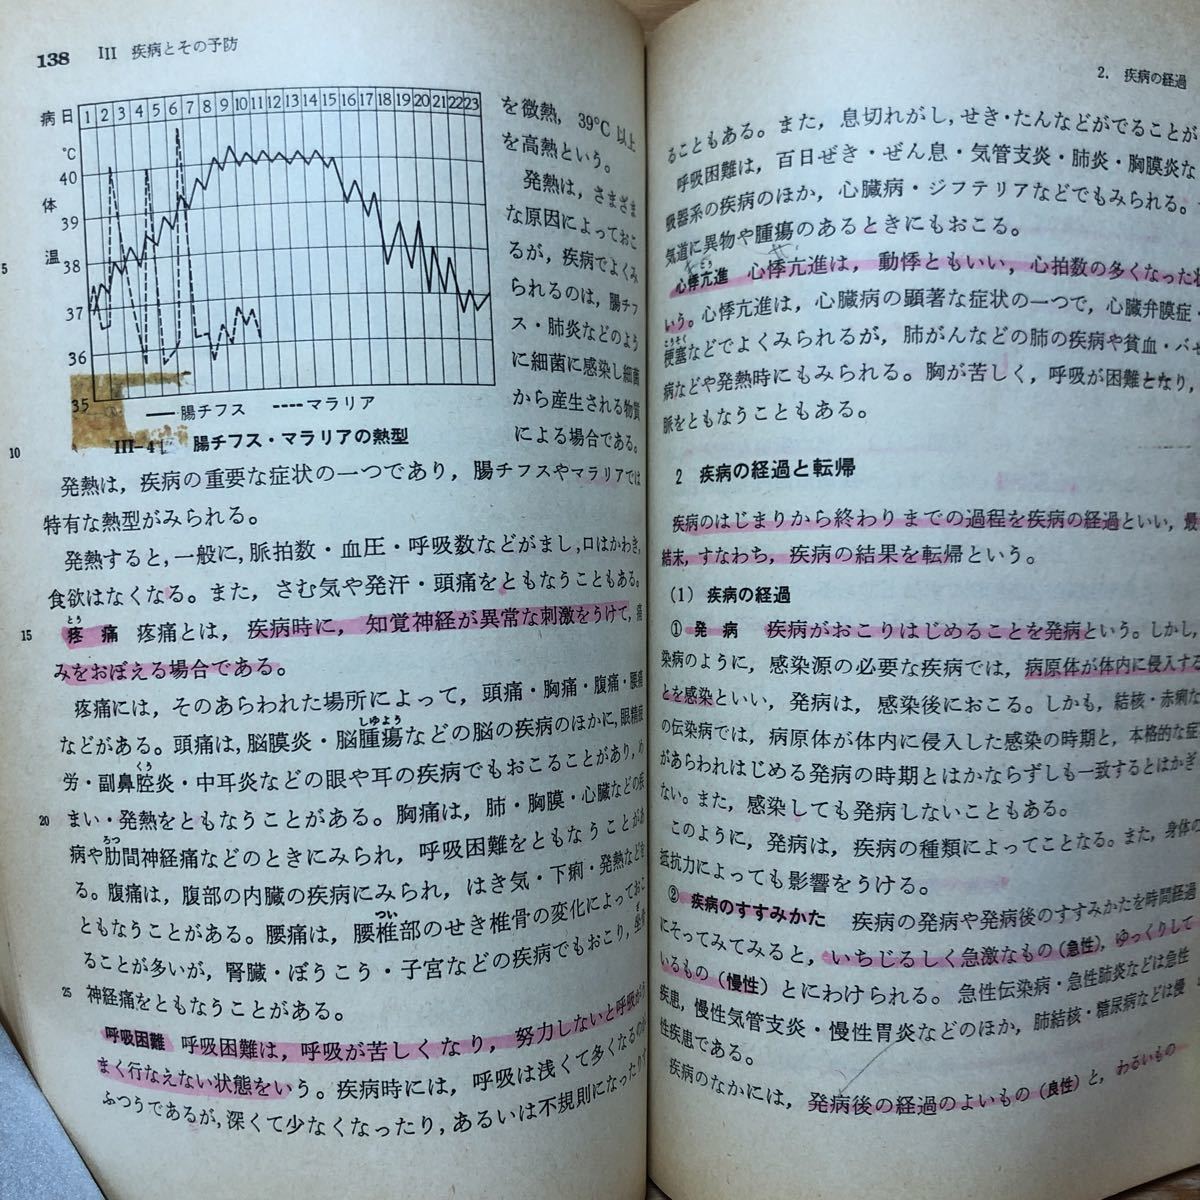 138 III 疾病とその予防
病日 1 2 3 4 5 6 7 8 9 10 11 12 13 14 15 16 17 18 19 20 21 22 23
℃
40
体
39
温
38
37
36
35
5
10
15
20
25
腸チフス マラリア
III-4 腸チフス・マラリアの熱型
を微熱，39°C 以上
を高熱という。
発熱は，さまざま
な原因によっておこ
るが，疾病でよくみ
られるのは，腸チフ
ス・肺炎などのよう
に細菌に感染し細菌
から産生される物質
による場合である。
発熱は，疾病の重要な症状の一つであり，腸チフスやマラリアでは
特有な熱型がみられる。
発熱すると，一般に，脈拍数・血圧・呼吸数などがまし，口はかわき，
食欲はなくなる。また，さむ気や発汗・頭痛をともなうこともある。
とう
疼痛 疼痛とは，疾病時に，知覚神経が異常な刺激をうけて，痛
みをおぼえる場合である。
疼痛には，そのあらわれた場所によって，頭痛・胸痛・腹痛・腰痛
しゆよう
などがある。頭痛は，脳膜炎・脳腫瘍などの脳の疾病のほかに，眼精疲
くう
労・副鼻腔炎・中耳炎などの眼や耳の疾病でもおこることがあり，め
まい・発熱をともなうことがある。胸痛は，肺・胸膜・心臓などの疾
ろつ
病や肋間神経痛などのときにみられ，呼吸困難をともなうことがあ
る。腹痛は，腹部の内臓の疾病にみられ，はき気・下痢・発熱などを
ともなうことがある。腰痛は，腰椎部のせき椎骨の変化によっておこ
つい
ることが多いが，腎臓・ぼうこう・子宮などの疾病でもおこり，坐骨
ざ
神経痛をともなうことがある。
呼吸困難 呼吸困難は，呼吸が苦しくなり，努力しないと呼吸がう
まく行なえない状態をいう。疾病時には，呼吸は浅くて多くなるのが
ふつうであるが，深くて少なくなったり，あるいは不規則になったりす
2. 疾病の経過
ることもある。また，息切れがし，せき・たんなどがでることが
呼吸困難は，百日ぜき・ぜん息・気管支炎・肺炎・胸膜炎な
吸器系の疾病のほか，心臓病・ジフテリアなどでもみられる。
気道に異物や腫瘍のあるときにもおこる。
心悸亢進 心悸亢進は，動悸ともいい，心拍数の多くなった状
いう。心悸亢進は，心臓病の顕著な症状の一つで，心臓弁膜症・
こうそく
梗塞などでよくみられるが，肺がんなどの肺の疾病や貧血・バセ
病などや発熱時にもみられる。胸が苦しく，呼吸が困難となり，
脈をともなうこともある。
2 疾病の経過と転帰
疾病のはじまりから終わりまでの過程を疾病の経過といい，最
結末，すなわち，疾病の結果を転帰という。
(1) 疾病の経過
① 発病 疾病がおこりはじめることを発病という。しかし，
染病のように，感染源の必要な疾病では，病原体が体内に侵入する
とを感染といい，発病は，感染後におこる。しかも，結核・赤痢な
の伝染病では，病原体が体内に侵入した感染の時期と，本格的な症
があらわれはじめる発病の時期とはかならずしも一致するとはかぎ
ない。また，感染しても発病しないこともある。
このように，発病は，疾病の種類によってことなる。また，身体の
抵抗力によっても影響をうける。
② 疾病のすすみかた 疾病の発病や発病後のすすみかたを時間経過
にそってみてみると，いちじるしく急激なもの（急性），ゆっくりして
いるもの（慢性）とにわけられる。急性伝染病・急性肺炎などは急性
疾患，慢性気管支炎・慢性胃炎などのほか，肺結核・糖尿病などは慢
性疾患である。
疾病のなかには，発病後の経過のよいもの（良性）と，わるいもの